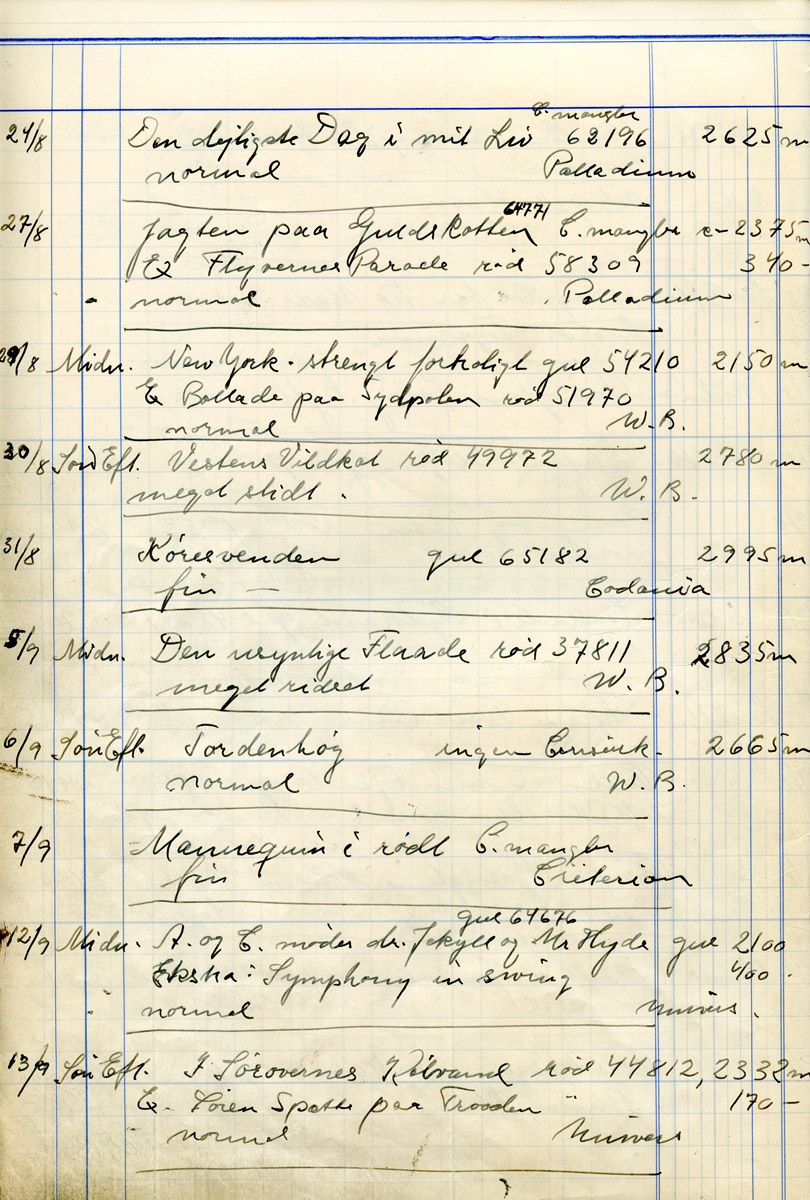 C. mangler
24/8 Den dejligste Dag i mit Liv 62196 2625 m
normal Palladium
64771
27/8 Jagten paa Guldskatten C. mangler 2375 m
Ex Flyvernes Parade rød 58309 340 -
normal Palladium
29/8 Midn. New York - strengt fortroligt gul 54210 2150 m
Ex Ballade paa Sydpolen rød 51970
normal W. B.
30/8 Søn Eft. Vestens Vildkat rød 49972 2780 m
meget slidt. W. B.
31/8 Køresvenden gul 65182 2995 m
fin - Codania
5/9 Midn. Den usynlige Flaade rød 37811 2835 m
meget ridset W. B.
6/9 Søn Eft. Tordenhøg ingen Censurk. 2665 m
normal W. B.
7/9 Mannequin i rødt C. mangler
fin Criterion
gul 64676
12/9 Midn. A. og C. møder dr. Jekyll og Mr Hyde gul 2100
Ekstra: Symphony in swing 400 -
normal Univers.
13/9 Søn Eft. I Sørøvernes Kølvand rød 44812, 2332 m
Ex. Søren Spætte paa Traaden " 170 -
normal Univers